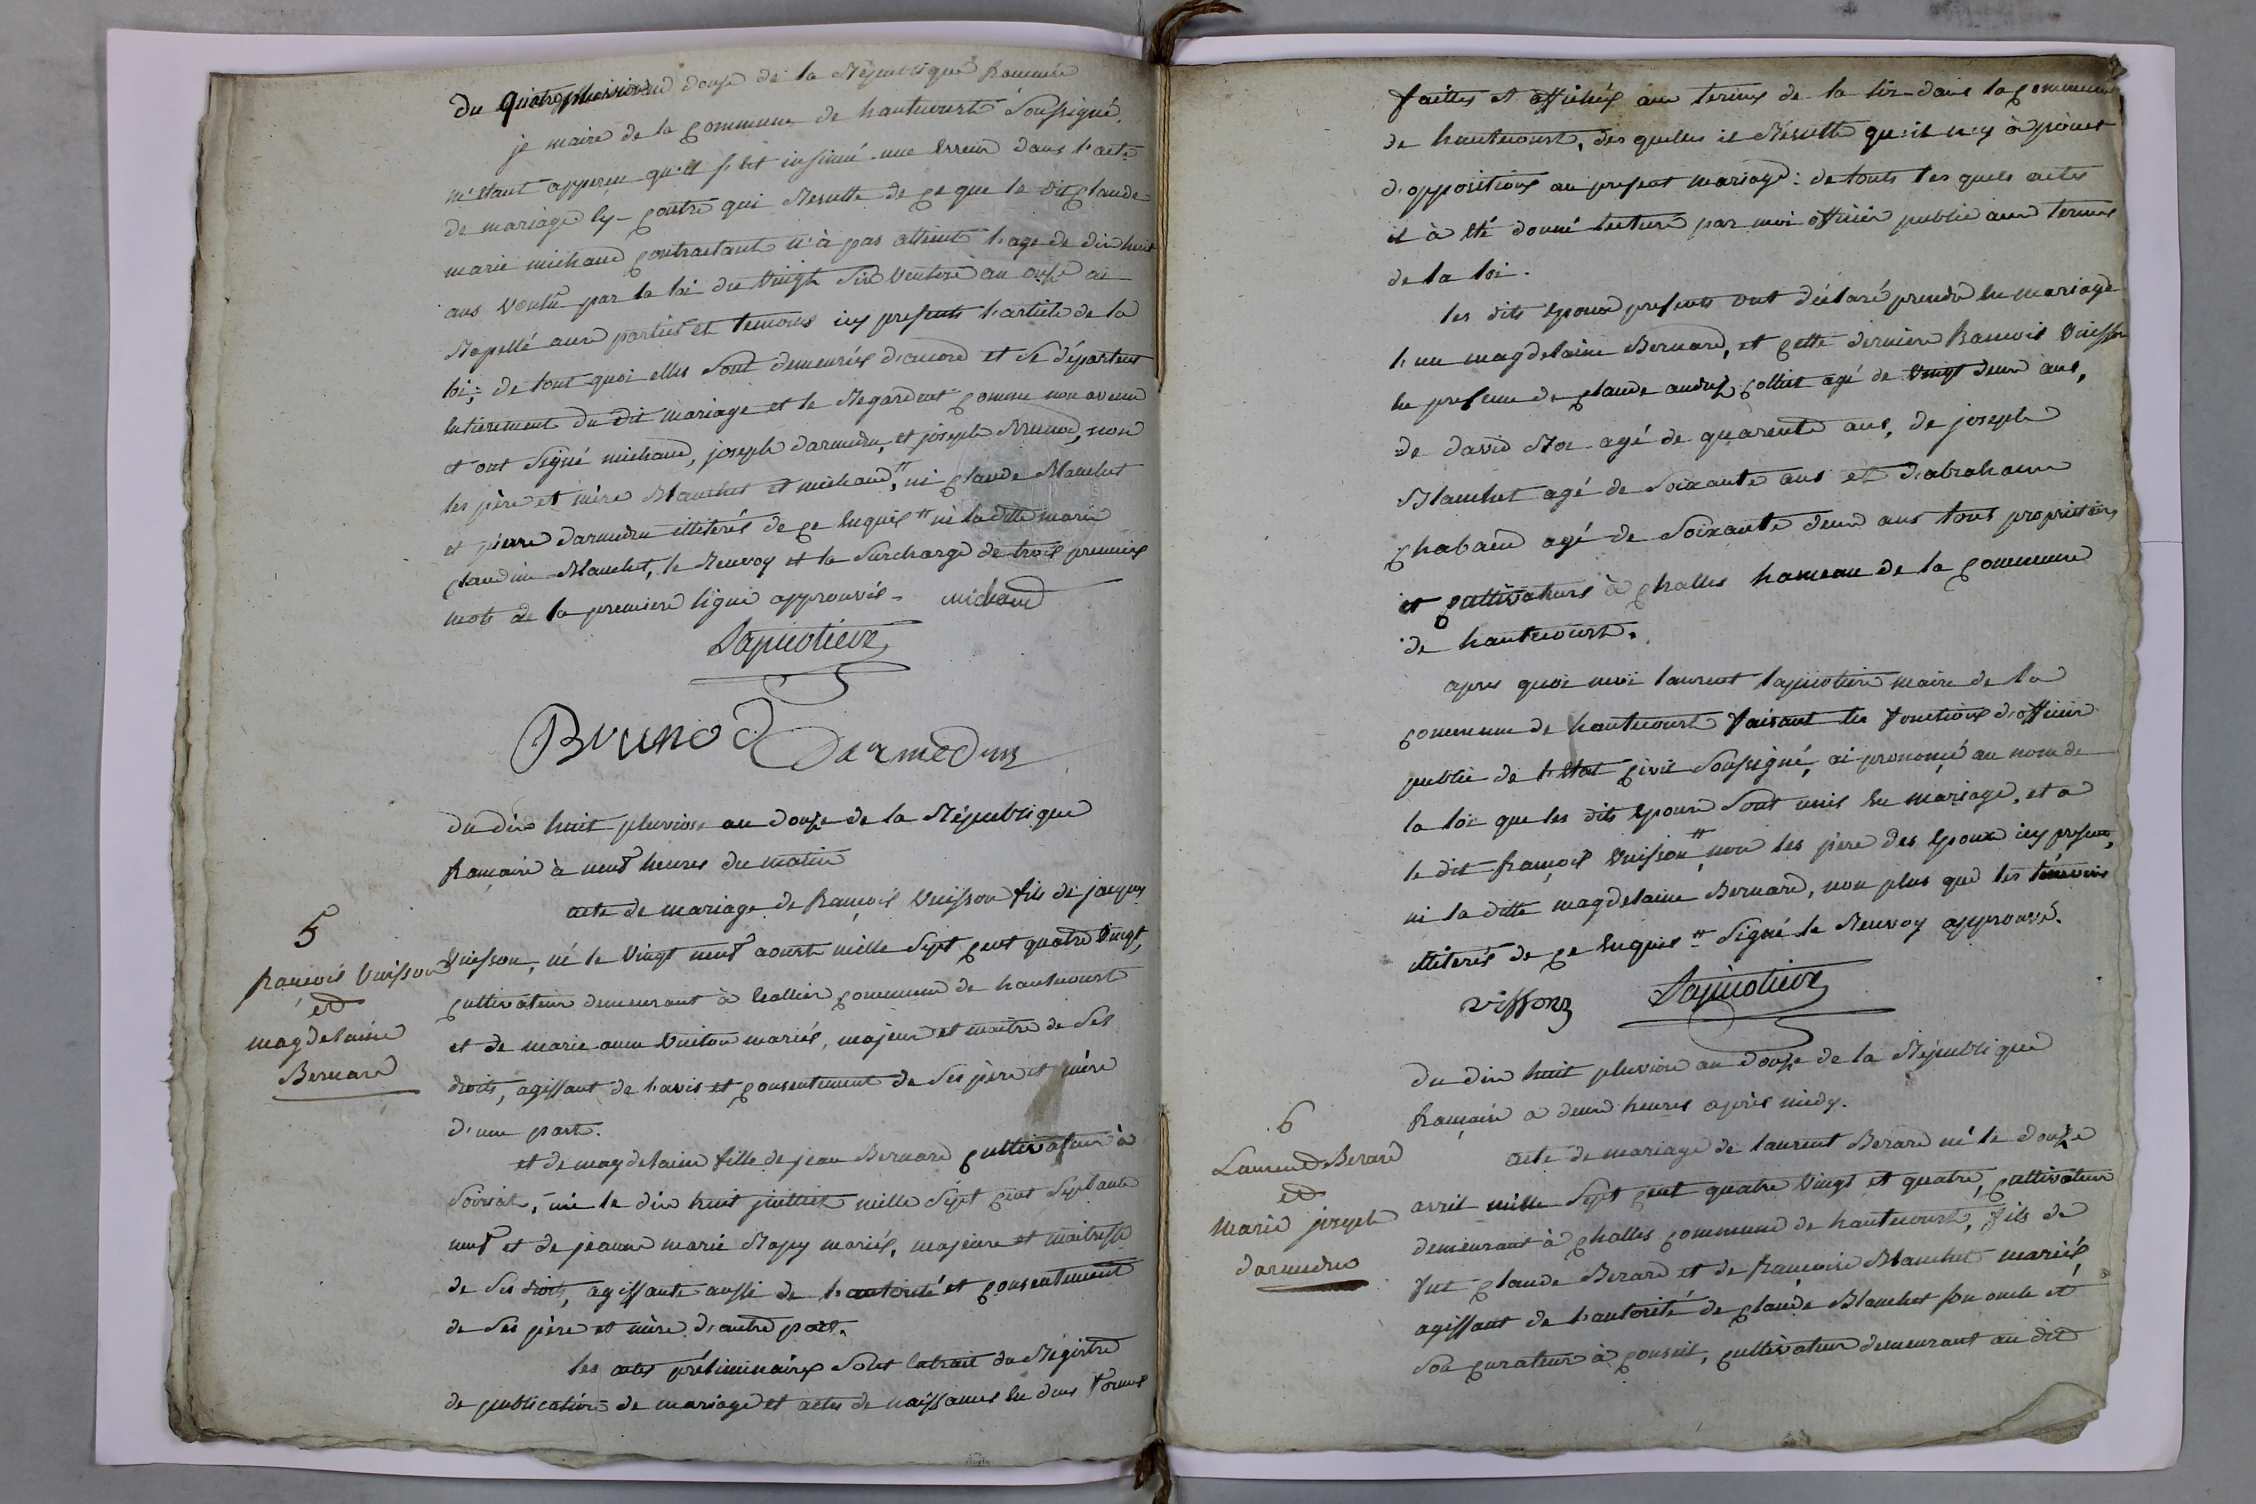 Du quatre pluviose an douze de la République francaise
je maire de la commune de hautecourt soussigné,
m'etant apperçu qu'il s'est insinué une erreur dans l'acte
de mariage cy-contre qui resulte de ce que le dit claude
marie michaud contractant n'à pas atteint l'age de dix huit
ans voulu par la loi du vingt six ventose an onze ai
rapellé aux parties et temoins icy presents l'article de la
loi; de tout quoi elles sont demeurées d'accord et se départent
entierement du dit mariage et le regardent comme non avenu
et ont signé michaud, joseph darmedru, et joseph Brunod, non
les père et mère Blanchet et michaud, " ni claude Blanchet
et pierre darmedru illiterés de ce enquis " ni la ditte marie
claudine Blanchet, le renvoy et la surcharge de trois premiers
mots de la premiere ligne approuvés - michaud
Lapicotiere
Brunod Darmedru
du dix huit pluviose an douze de la République
francaise à neuf heures du matin
5
francois Vuisson
et
magdelaine
Bernard
acte de mariage de françois Vuisson fils de jacques
Vuisson, né le vingt neuf aoust mille sept cent quatre vingt,
cultivateur demeurant à commune de hautecourt
et de marie anne Vuiton mariés, majeur et maitre de ses
droits, agissant de l'avis et consentement de ses père et mère
d'une part.
et de magdelaine fille de jean Bernard cultivateur à
Soiriat, née le dix huit juillet mille sept cent septante
neuf et de jeanne marie Rapy mariés, majeure et maitresse
de ses droits, agissante aussi de l'autorité et consentement
de ses père et mère d'autre part.
les actes préliminaires sont extrait du Régistre
de publications de mariage et actes de naissances en dues formes
faittes et affichés aux termes de la loi dans la commune
de hautecourt, des quelles il résulte qu'il n'y à point
d'oppositions au present mariage: de touts les quels actes
il à été donné lecture par moi officier public aux termes
de la loi.
les dits epoux presents ont déclaré prendre en mariage
l'un magdelaine Bernard, et cette derniere francois Vuisson
en presence de claude andré collet agé de vingt deux ans,
de david Roi agé de quarente ans, de joseph
Blanchet agé de soixante ans et d'abraham
chabaud agé de soixante deux ans tous proprietaires
et cultivateurs à challes hameau de la commune
de hautecourt.
apres quoi moi laurent lapicotiere maire de la
commune de hautecourt faisant les fonctions d'officier
public de l'etat civil soussigné, ai prononcé au nom de
la loi que les dits epoux sont unis en mariage, et a
le dit françois Vuisson " non les père des epoux icy presents,
ni la ditte magdelaine Bernard, non plus que les témoins
illiterés de ce enquis " signé le renvoy approuvé.
vissonz Lapicotiere
du dix huit pluviose an douze de la République
francaise a deux heures après midy.
6
Laurend Berard
et
marie joseph
darmedru
acte de mariage de laurent Berard né le douze
avril mille sept cent quatre vingt et quatre, cultivateur
demeurant à challes commune de hautecourt, fils de
fut claude Berard et de francoise Blanchet mariés,
agissant de l'autorité de claude Blanchet son oncle et
son curateur à conseil, cultivateur demeurant au dit